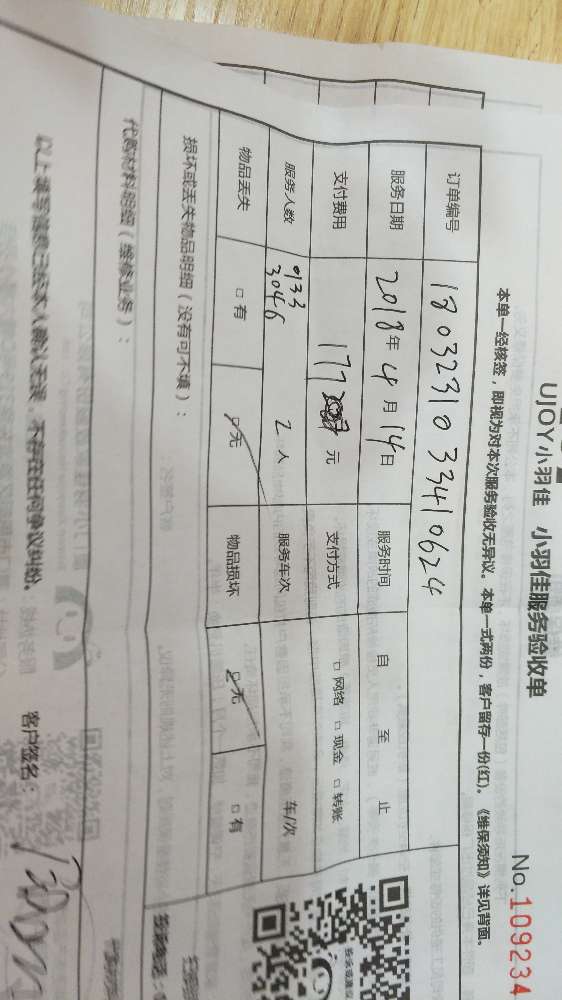 UJOY小羽佳 小羽佳服务验收单
No.109234
本单一经核签，即视为对本次服务验收无异议。本单一式两份，客户留存一份(红)。《维保须知》详见背面。
订单编号 1803231033410624
服务日期 2018年4月14日 服务时间 自 至 止
支付费用 177 元 支付方式 □ 网络 □ 现金 □ 转账
服务人数 0133 3046 2人 服务车次 车/次
物品丢失 □ 有 □无 物品损坏 □无 □ 有
损坏或丢失物品明细（没有可不填）：
代购材料明细（维修业务）：
以上填写信息已经本人确认无误，不存在任何争议纠纷。 客户签名：